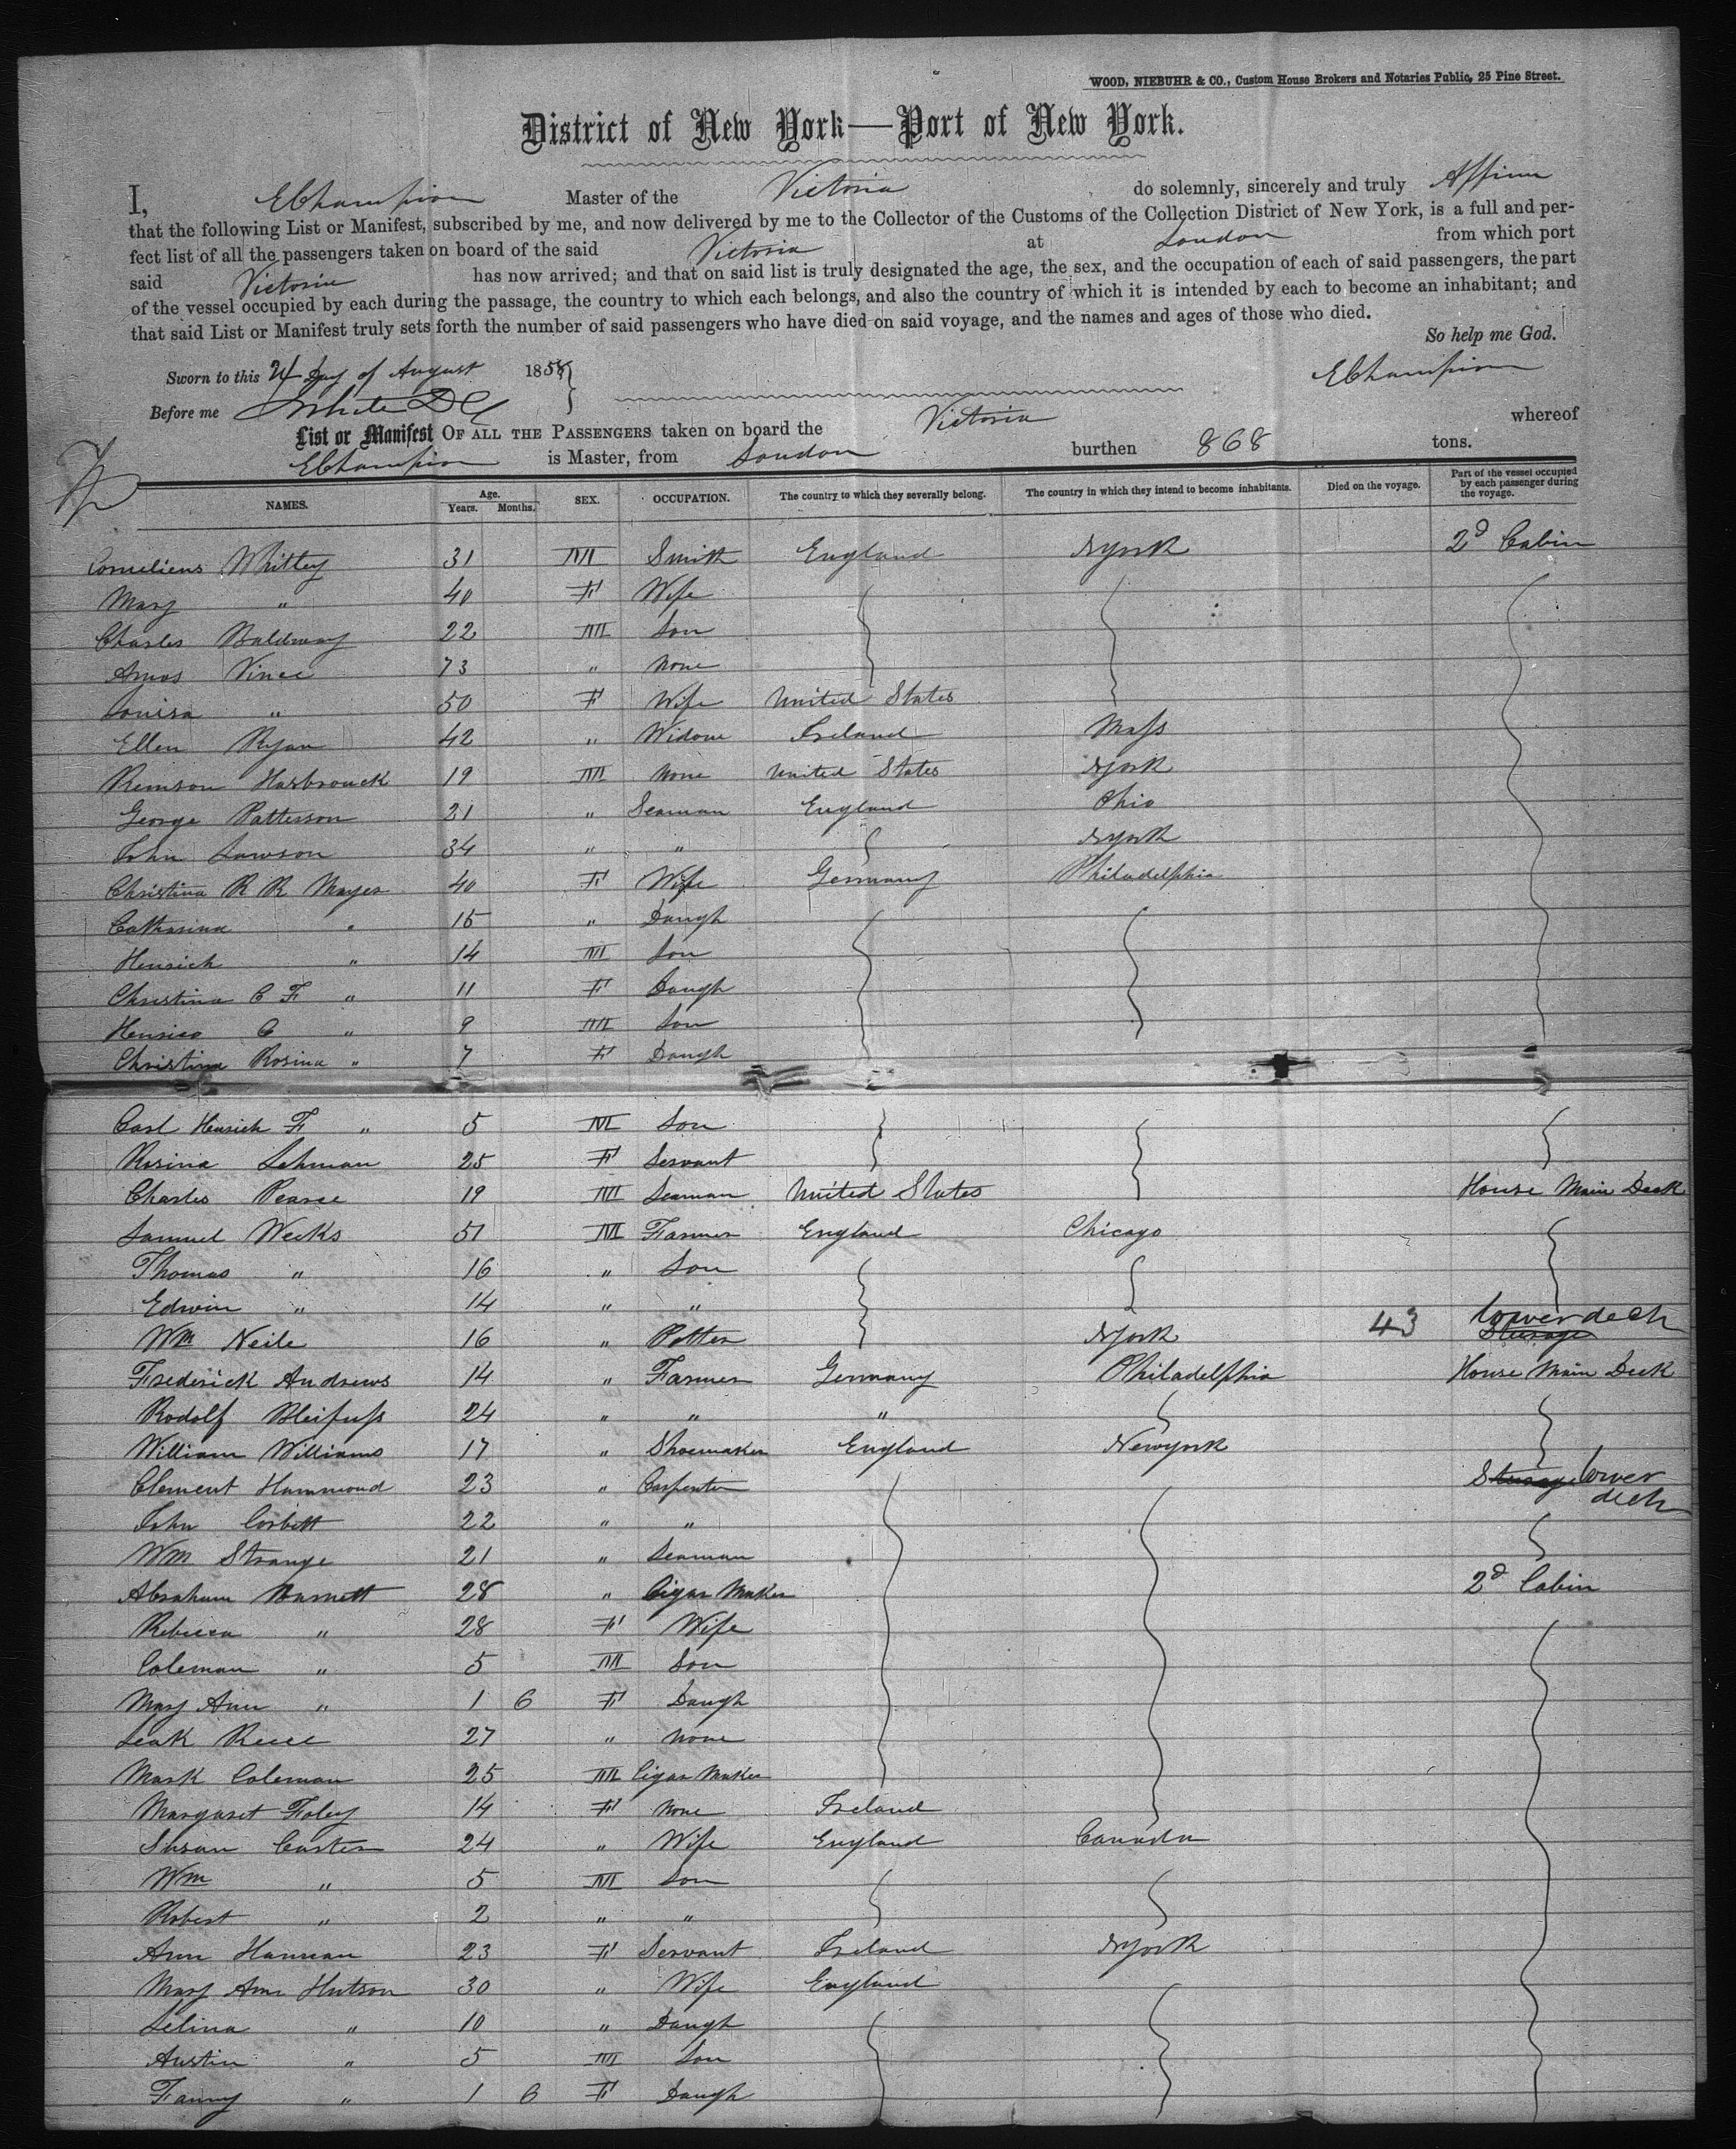 WOOD, NIEBUHR & CO., Custom House Brokers and Notaries Public, 25 Pine Street.
District of New York—Port of New York.
I, EChampion Master of the Victoria do solemnly, sincerely and truly Affirm
that the following List or Manifest, subscribed by me, and now delivered by me to the Collector of the Customs of the Collection District of New York, is a full and per-
fect list of all the passengers taken on board of the said Victoria at London from which port
said Victoria has now arrived; and that on said list is truly designated the age, the sex, and the occupation of each of said passengers, the part
of the vessel occupied by each during the passage, the country to which each belongs, and also the country of which it is intended by each to become an inhabitant; and
that said List or Manifest truly sets forth the number of said passengers who have died on said voyage, and the names and ages of those who died.
So help me God.
Sworn to this 24 Day of August 1858 EChampion
Before me White DC
List or Manifest OF ALL THE PASSENGERS taken on board the Victoria whereof
EChampion is Master, from London burthen 868 tons.
NAMES. Age. Years. Months. SEX. OCCUPATION. The country to which they severally belong. The country in which they intend to become inhabitants. Died on the voyage. Part of the vessel occupied by each passenger during the voyage.
Corneliens Whitley 31 M Smith England NYork 2d Cabin
Mary " 40 F Wife
Charles Baldway 22 M Son
Amos Vince 73 " None
Louisa " 50 F Wife United States
Ellen Ryan 42 " Widow Ireland Mass
Remson Hasbrouck 19 M None United States NYork
George Patterson 21 " Seaman England Ohio
John Lawson 34 " " NYork
Christina R R Mayer 40 F Wife Germany Philadelphia
Catharina " 15 " Daugh
Henrich " 14 M Son
Christina C F " 11 F Daugh
Henrico C " 9 M Son
Christina Rosina " 7 F Daugh
Carl Henrich F " 5 M Son
Rosina Lehman 25 F Servant
Charles Pearce 19 M Seaman United States House Main Deck
Samuel Weeks 51 M Farmer England Chicago
Thomas " 16 " Son
Edwin " 14 " "
Wm Neile 16 " Potter NYork 43 Steerage lower deck
Frederick Andrews 14 " Farmer Germany Philadelphia House Main Deck
Rodolf Bleifuss 24 " " "
William Williams 17 " Shoemaker England Newyork
Clement Hammond 23 " Carpenter Steerage lower deck
John Corbett 22 " "
Wm Strange 21 " Seaman
Abraham Barnett 28 " Cigar Maker 2d Cabin
Rebecca " 28 F Wife
Coleman " 5 M Son
Mary Ann " 1 6 F Daugh
Leah Reece 27 " None
Mark Coleman 25 M Cigar Maker
Margaret Foley 14 F None Ireland
Susan Carter 24 " Wife England Canada
Wm " 5 M Son
Robert " 2 " "
Ann Hannan 23 F Servant Ireland NYork
Mary Ann Hutson 30 " Wife England
Selina " 10 " Daugh
Austin " 5 M Son
Fanny " 1 6 F Daugh